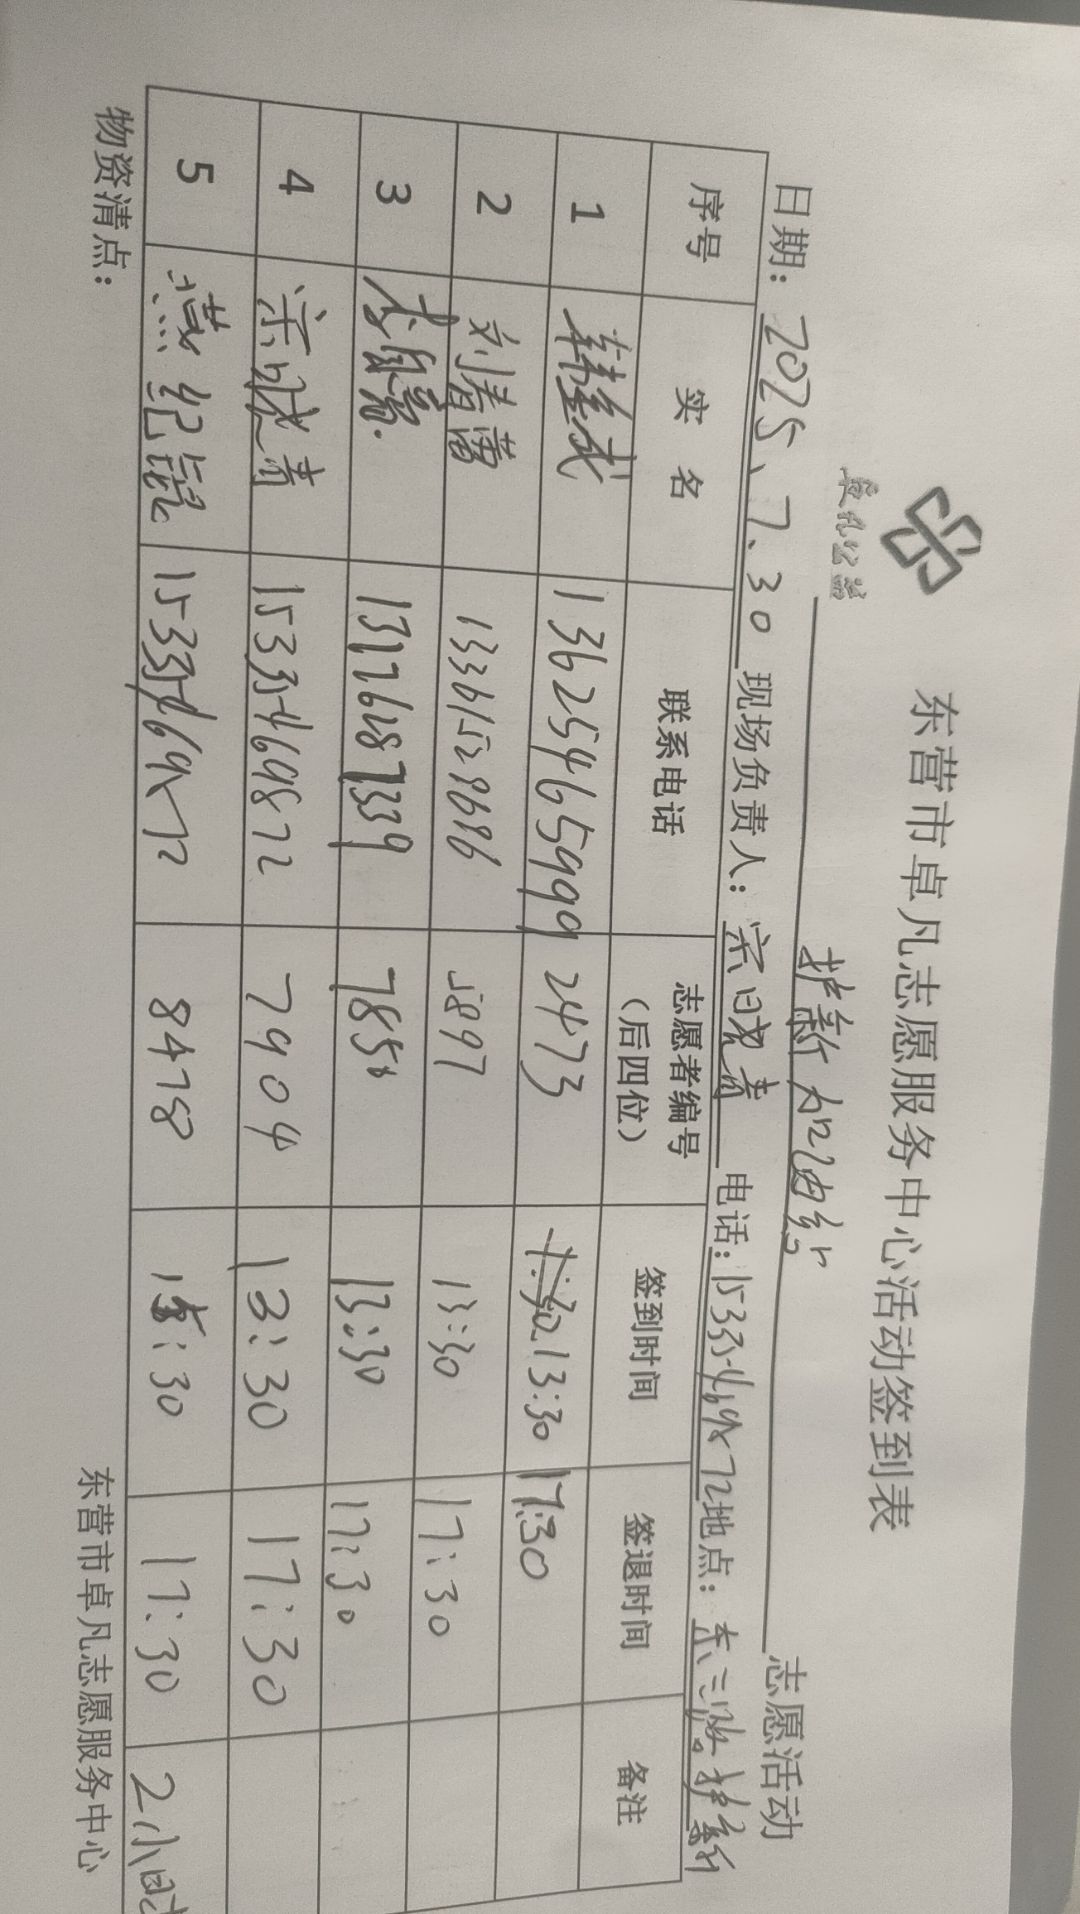 卓凡公益
东营市卓凡志愿服务中心活动签到表
护薪加油纾 志愿活动
日期：2025、7.30 现场负责人：宗晓青 电话：15335469872 地点：东三路护薪
序号 实名 联系电话 志愿者编号（后四位） 签到时间 签退时间 备注
1 13625465999 2473 13:30 17:30
2 刘春蕾 13361529696 5897 13:30 17:30
3 13126187339 7858 13:30 17:30
4 宗晓青 15335469872 7904 13:30 17:30
5 燕 15335469872 8478 15:30 17:30 2小时
物资清点：
东营市卓凡志愿服务中心